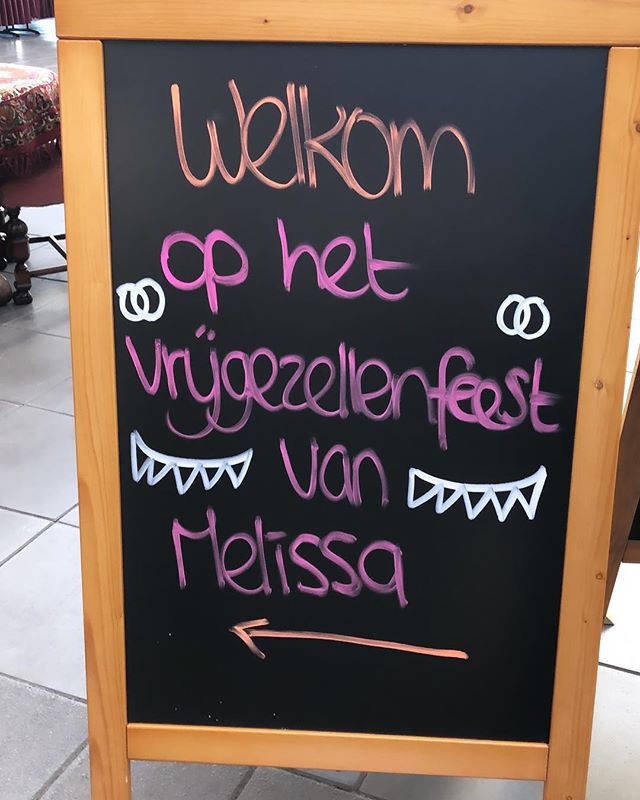 Welkom
op het
vrijgezellenfeest
van
Melissa